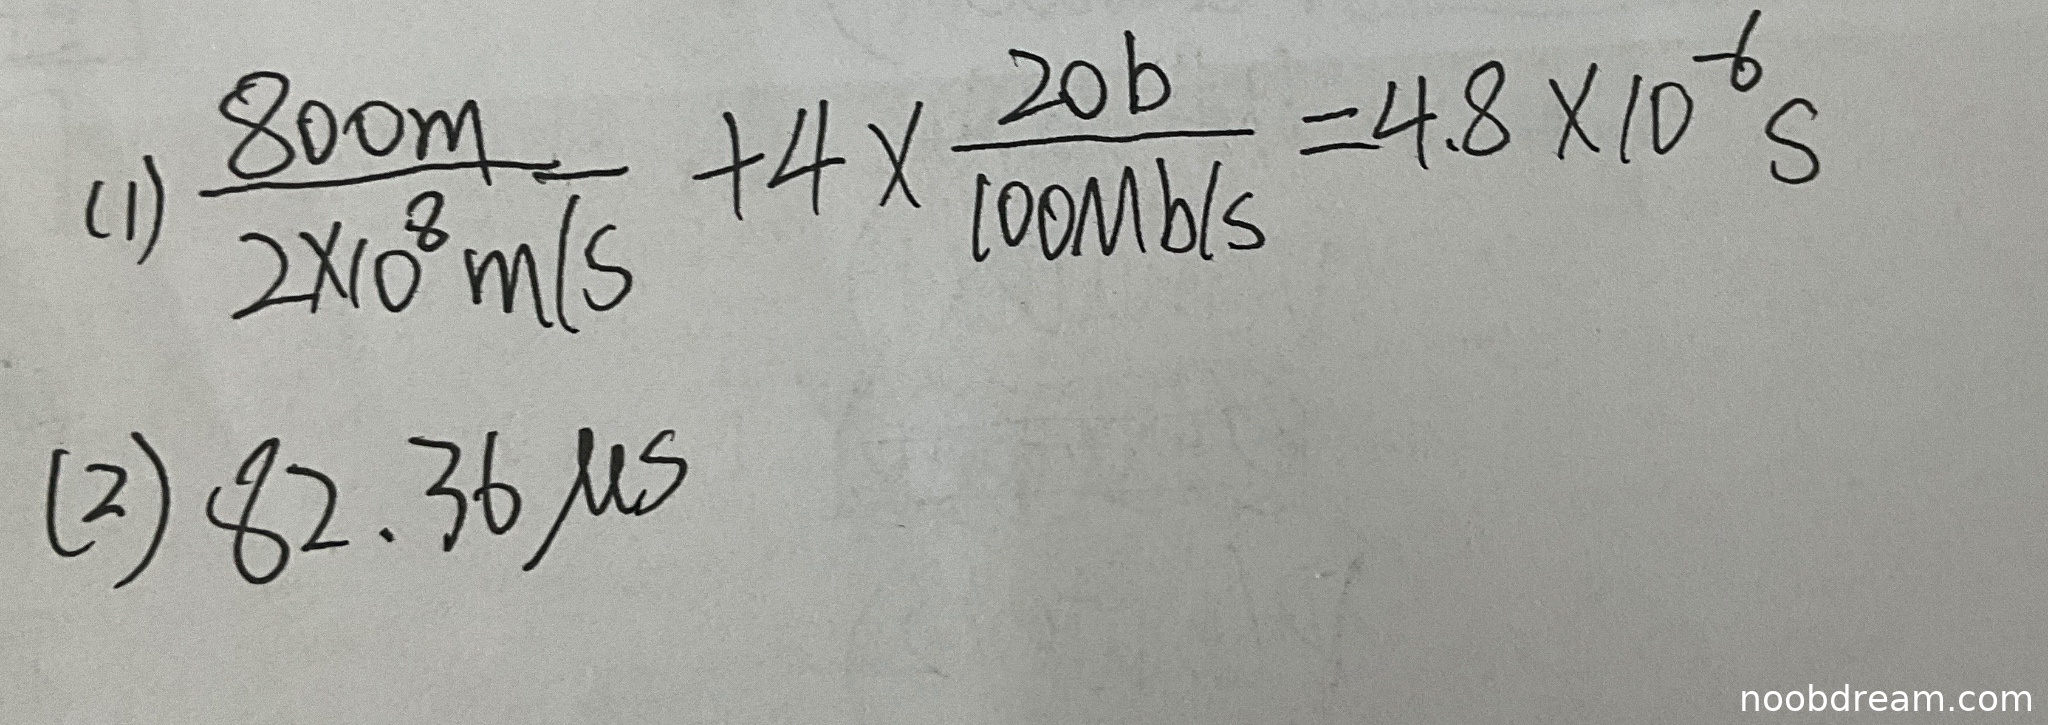 (1) 800m / 2×10⁸m/s + 4 × 20b / 100Mb/s = 4.8 × 10⁻⁶ s
(2) 82.36 μs
noobdream.com